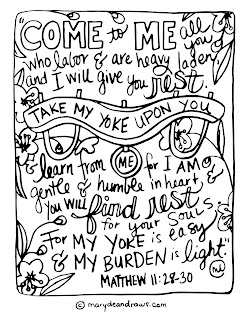 "COME to ME all
you
who labor & are heavy laden,
and I will give you rest.
TAKE MY YOKE UPON YOU
& learn from ME for I AM
gentle & humble in heart &
you will find rest
for your souls.
For MY YOKE is easy
& MY BURDEN is light"
MATTHEW 11:28-30
© marydeandraws.com